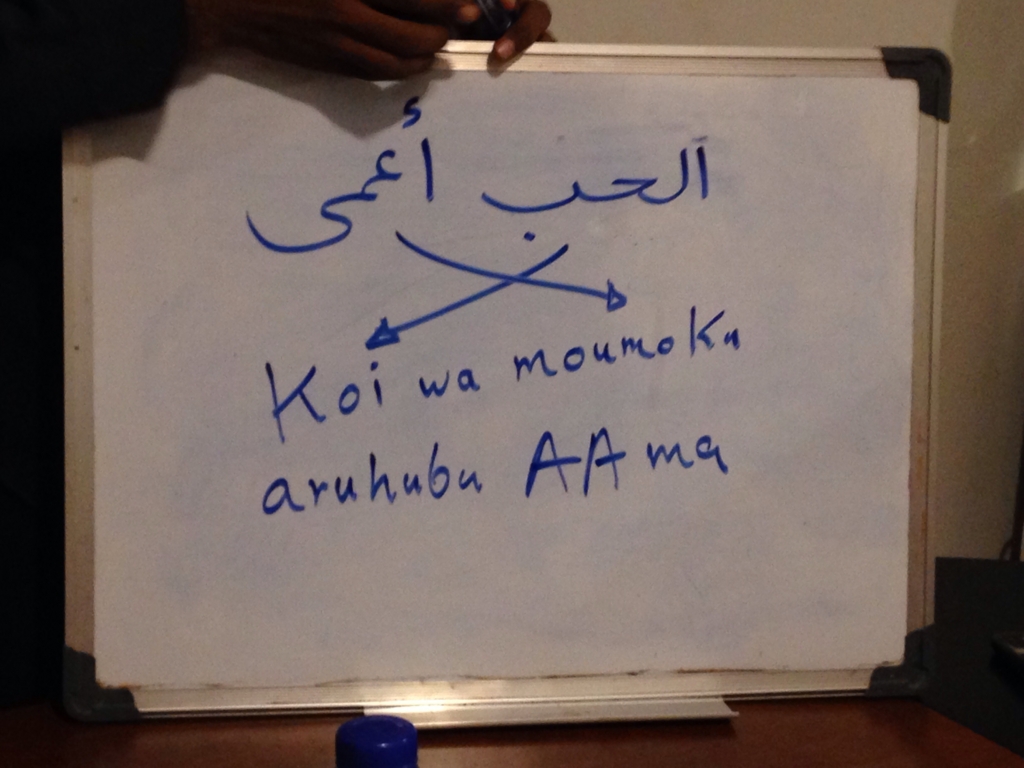 الحب أعمى
Koi wa moumoku
aruhubu AAma